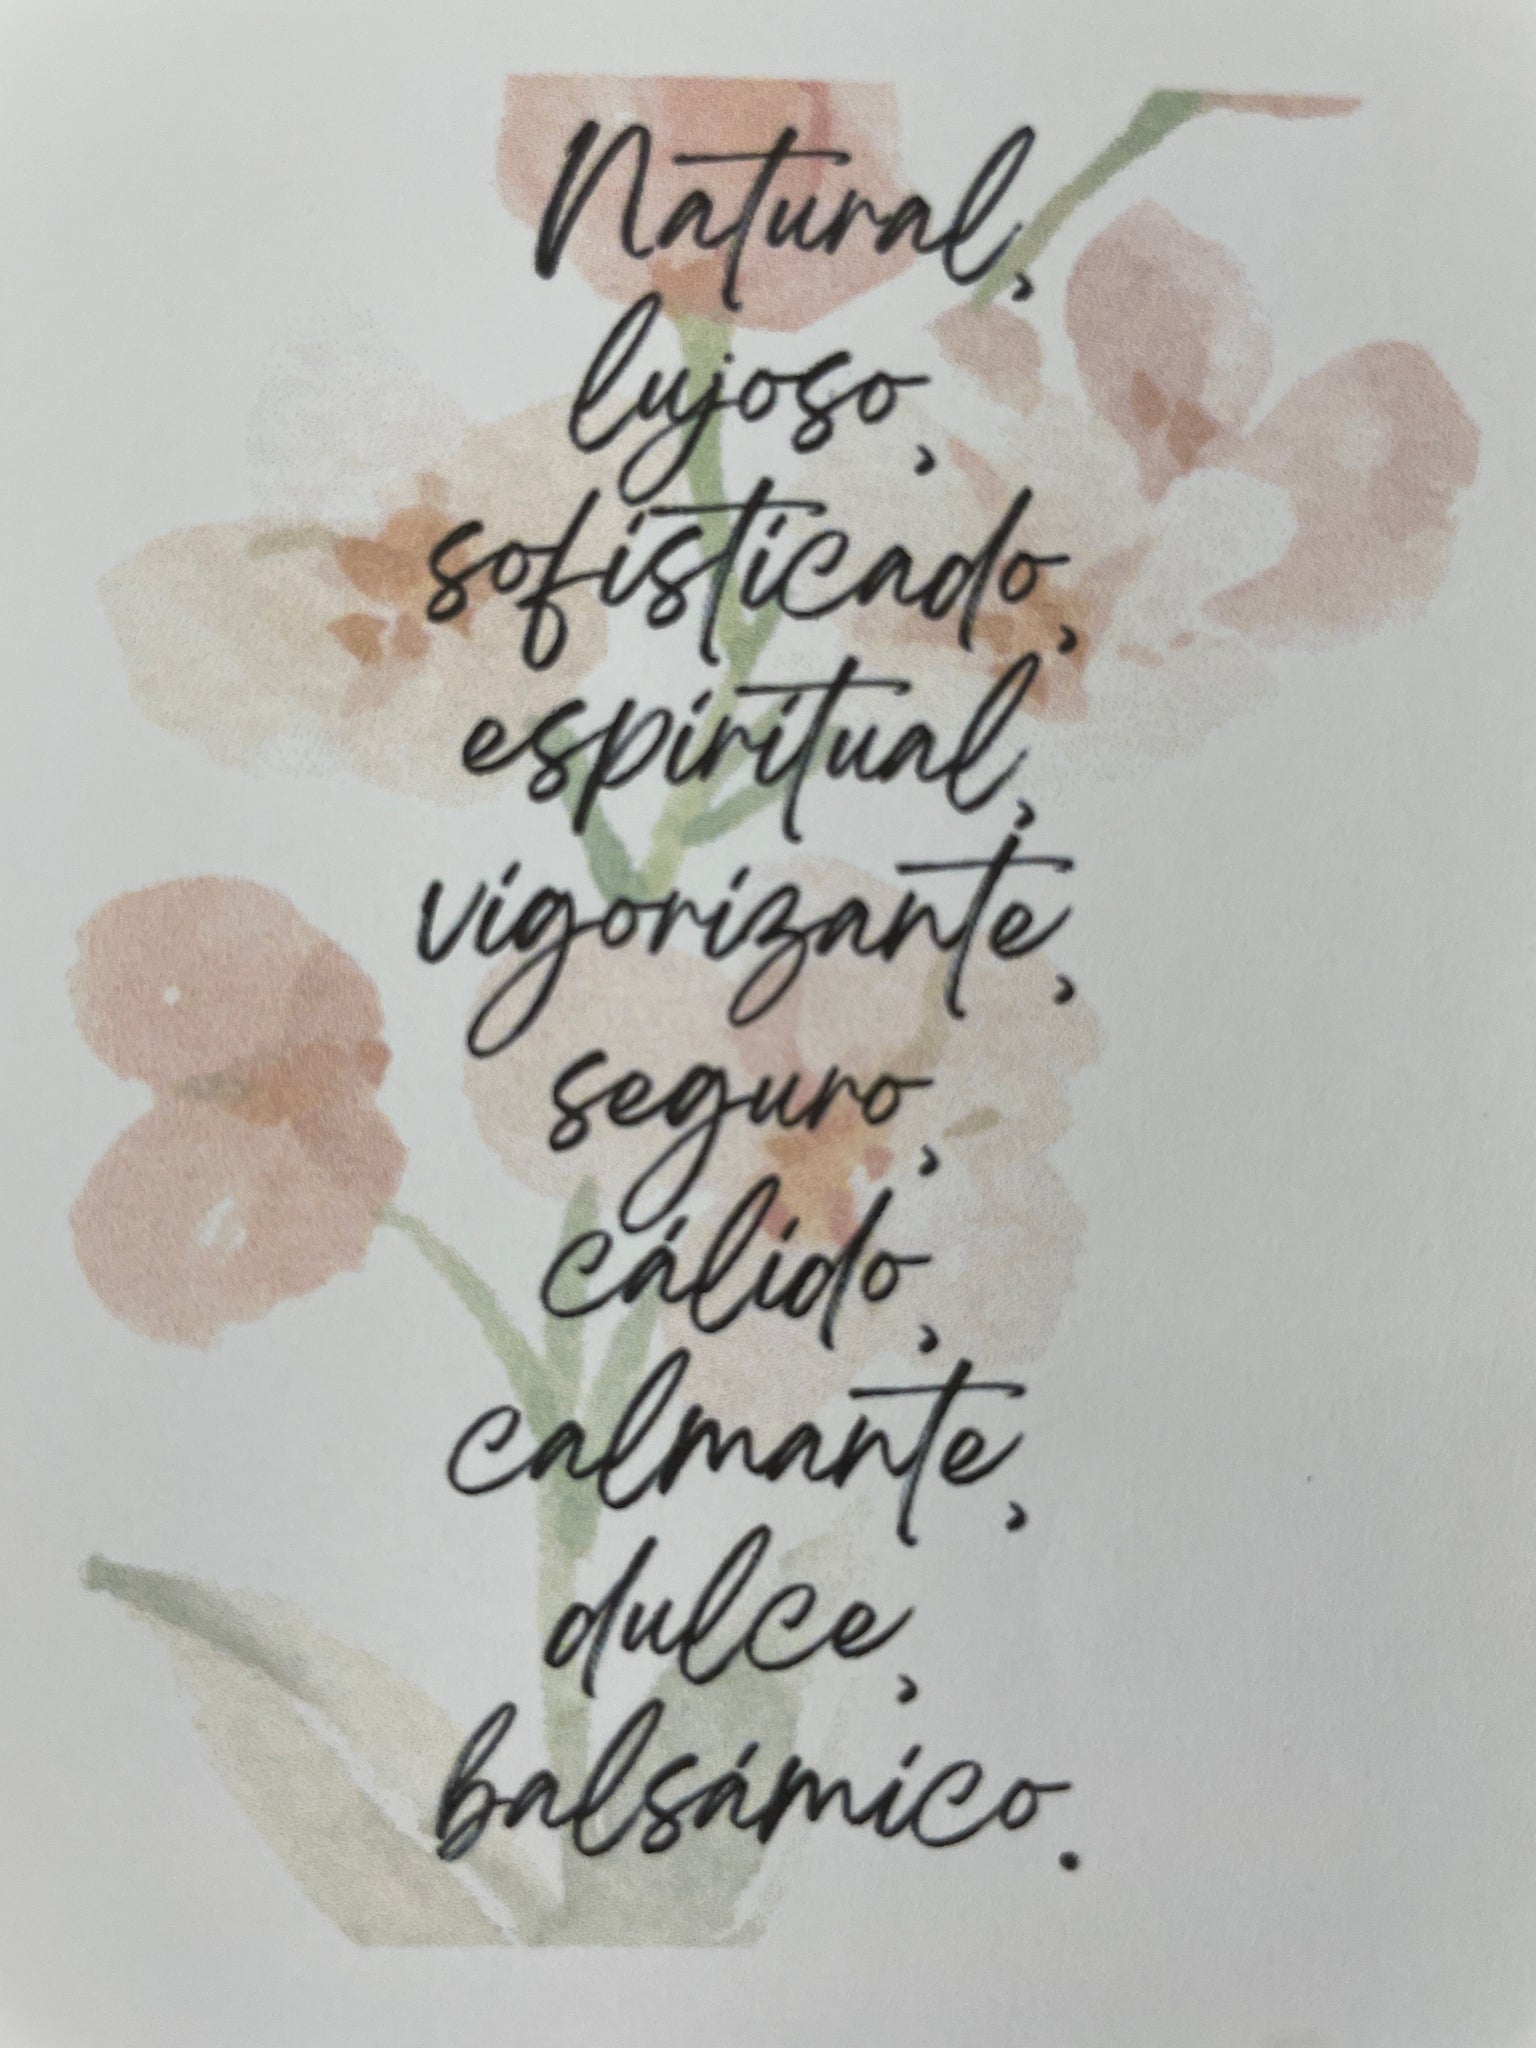 Natural,
lujoso,
sofisticado,
espiritual,
vigorizante,
seguro,
cálido,
calmante,
dulce,
balsámico.